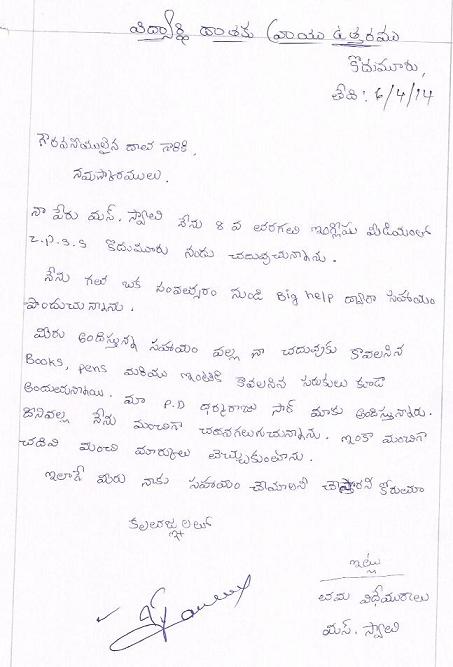 విద్యార్థి దాతకు వ్రాయు ఉత్తరము
కొడుమూరు,
తేది: 6/4/14
గౌరవనీయులైన దాత గారికి,
నమస్కారములు.
నా పేరు యస్. స్వాతి నేను 8 వ తరగతి ఇంగ్లీషు మీడియంలో
Z.P.S.S కొడుమూరు నందు చదువుచున్నాను.
నేను గత ఒక సంవత్సరం నుండి Big help ద్వారా సహాయం
పొందుచున్నాను.
మీరు అందిస్తున్న సహాయం వల్ల నా చదువుకు కావలసిన
Books, pens మరియు ఇంటికి కావలసిన సరుకులు కూడా
అందుచున్నాయి. మా P.D ధర్మరాజు సార్ మాకు అందిస్తున్నారు.
దీనివల్ల నేను మంచిగా చదవగలుగుచున్నాను. ఇంకా మంచిగా
చదివి మంచి మార్కులు తెచ్చుకుంటాను.
ఇలాగే మీరు నాకు సహాయం చేయాలని చేస్తారని కోరుతూ
కృతజ్ఞతలతో
ఇట్లు
తమ విధేయురాలు
యస్. స్వాతి